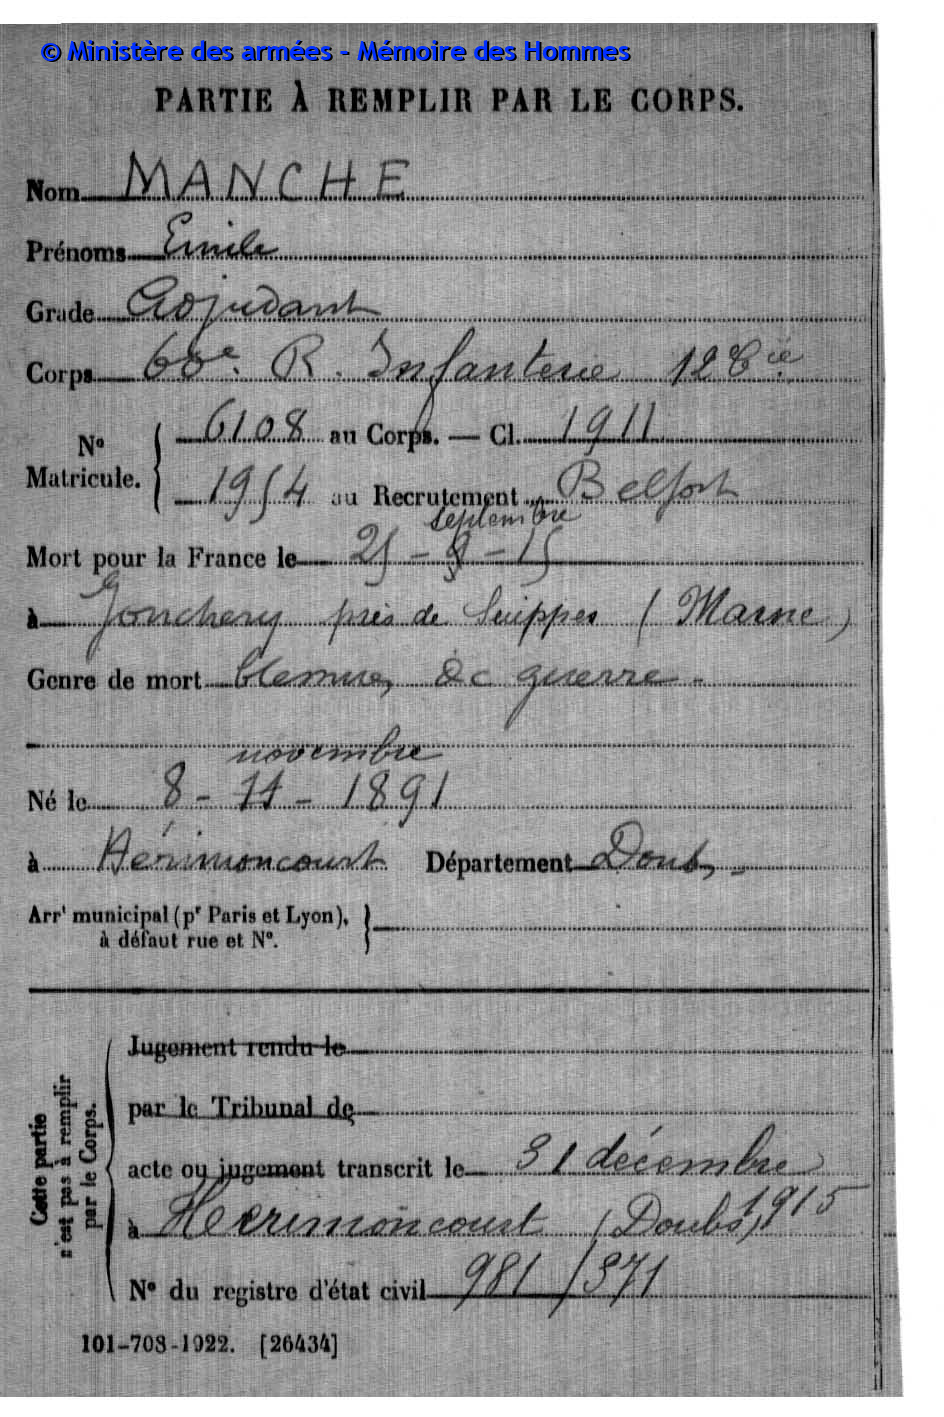 © Ministère des armées - Mémoire des Hommes
PARTIE À REMPLIR PAR LE CORPS.
Nom MANCHE
Prénoms Emile
Grade Adjudant
Corps 60e. R. Infanterie 12 Cie
N° Matricule. 6108 au Corps. — Cl. 1911
1954 au Recrutement Belfort
septembre
Mort pour la France le 25 - 9 - 15
à Jonchery près de Suippes (Marne)
Genre de mort blessures de guerre -
novembre
Né le 8 - 11 - 1891
à Hérimoncourt Département Doubs -
Arrt municipal (pr Paris et Lyon),
à défaut rue et N°.
Cette partie n'est pas à remplir par le Corps.
Jugement rendu le
par le Tribunal de
acte ou jugement transcrit le 31 décembre
1915
à Herimoncourt (Doubs)
N° du registre d'état civil 981/371
101-708-1922. [26434]